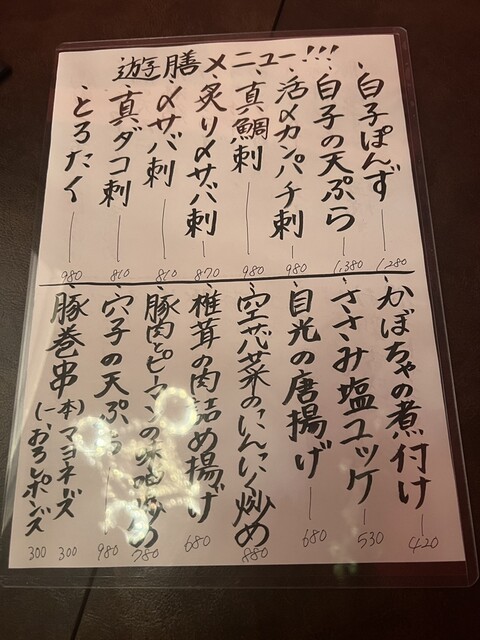 遊膳メニュー!!!
白子ぽんず 1,280
白子の天ぷら 1,380
活〆カンパチ刺 980
真鯛刺 980
炙り〆サバ刺 870
〆サバ刺 810
真ダコ刺 810
とろたく 980
かぼちゃの煮付け 420
ささみ塩ユッケ 530
目光の唐揚げ 680
空芯菜のにんにく炒め 880
椎茸の肉詰め揚げ 680
豚肉とピーマンの味噌炒め 780
穴子の天ぷら 980
豚巻串(一本)マヨネーズ 300
おろしポンズ 300